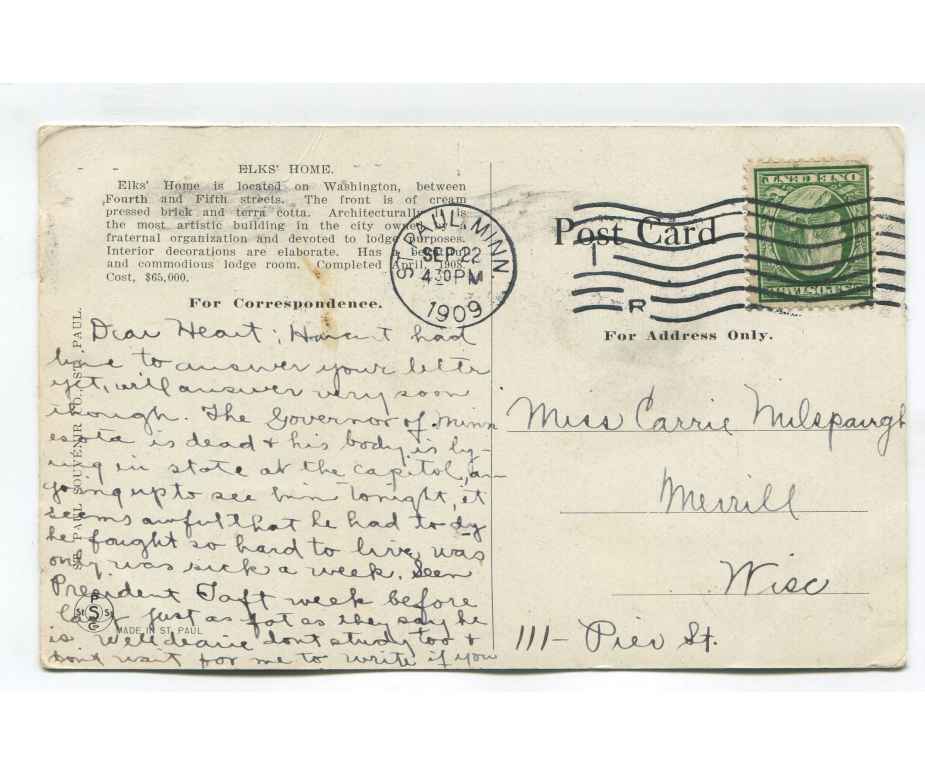 ELKS' HOME.
Elks' Home is located on Washington, between
Fourth and Fifth streets. The front is of cream
pressed brick and terra cotta. Architecturally is
the most artistic building in the city owned
fraternal organization and devoted to lodge purposes.
Interior decorations are elaborate. Has
and commodious lodge room. Completed April, 1908.
Cost, $65,000.
For Correspondence.
Dear Heart; Havent had
time to answer your letter
yet, will answer very soon
though. The Governor of Minn
esota is dead & his body is ly-
ing in state at the capitol, am
going up to see him tonight, it
seems awful that he had to dy
he fought so hard to live, was
only was sick a week. Seen
President Taft week before
last just as fat as they say he
is Well dearie dont study too &
dont wait for me to write if you
ST. PAUL SOUVENIR CO., ST. PAUL.
P
St S St
G
MADE IN ST. PAUL
ST. PAUL, MINN.
SEP 22
4 30 PM
1909
Post Card
1
R
ONE CENT
U.S. POSTAGE
For Address Only.
Miss Carrie Milspaugh
Merrill
Wisc
111- Pier St.